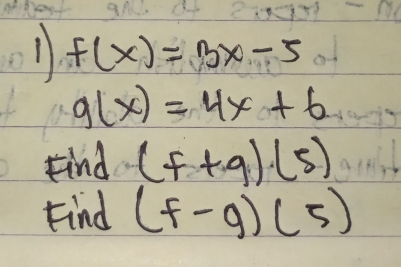 1) f(x) = 3x - 5
g(x) = 4x + 6
Find (f + g) (5)
Find (f - g) (5)